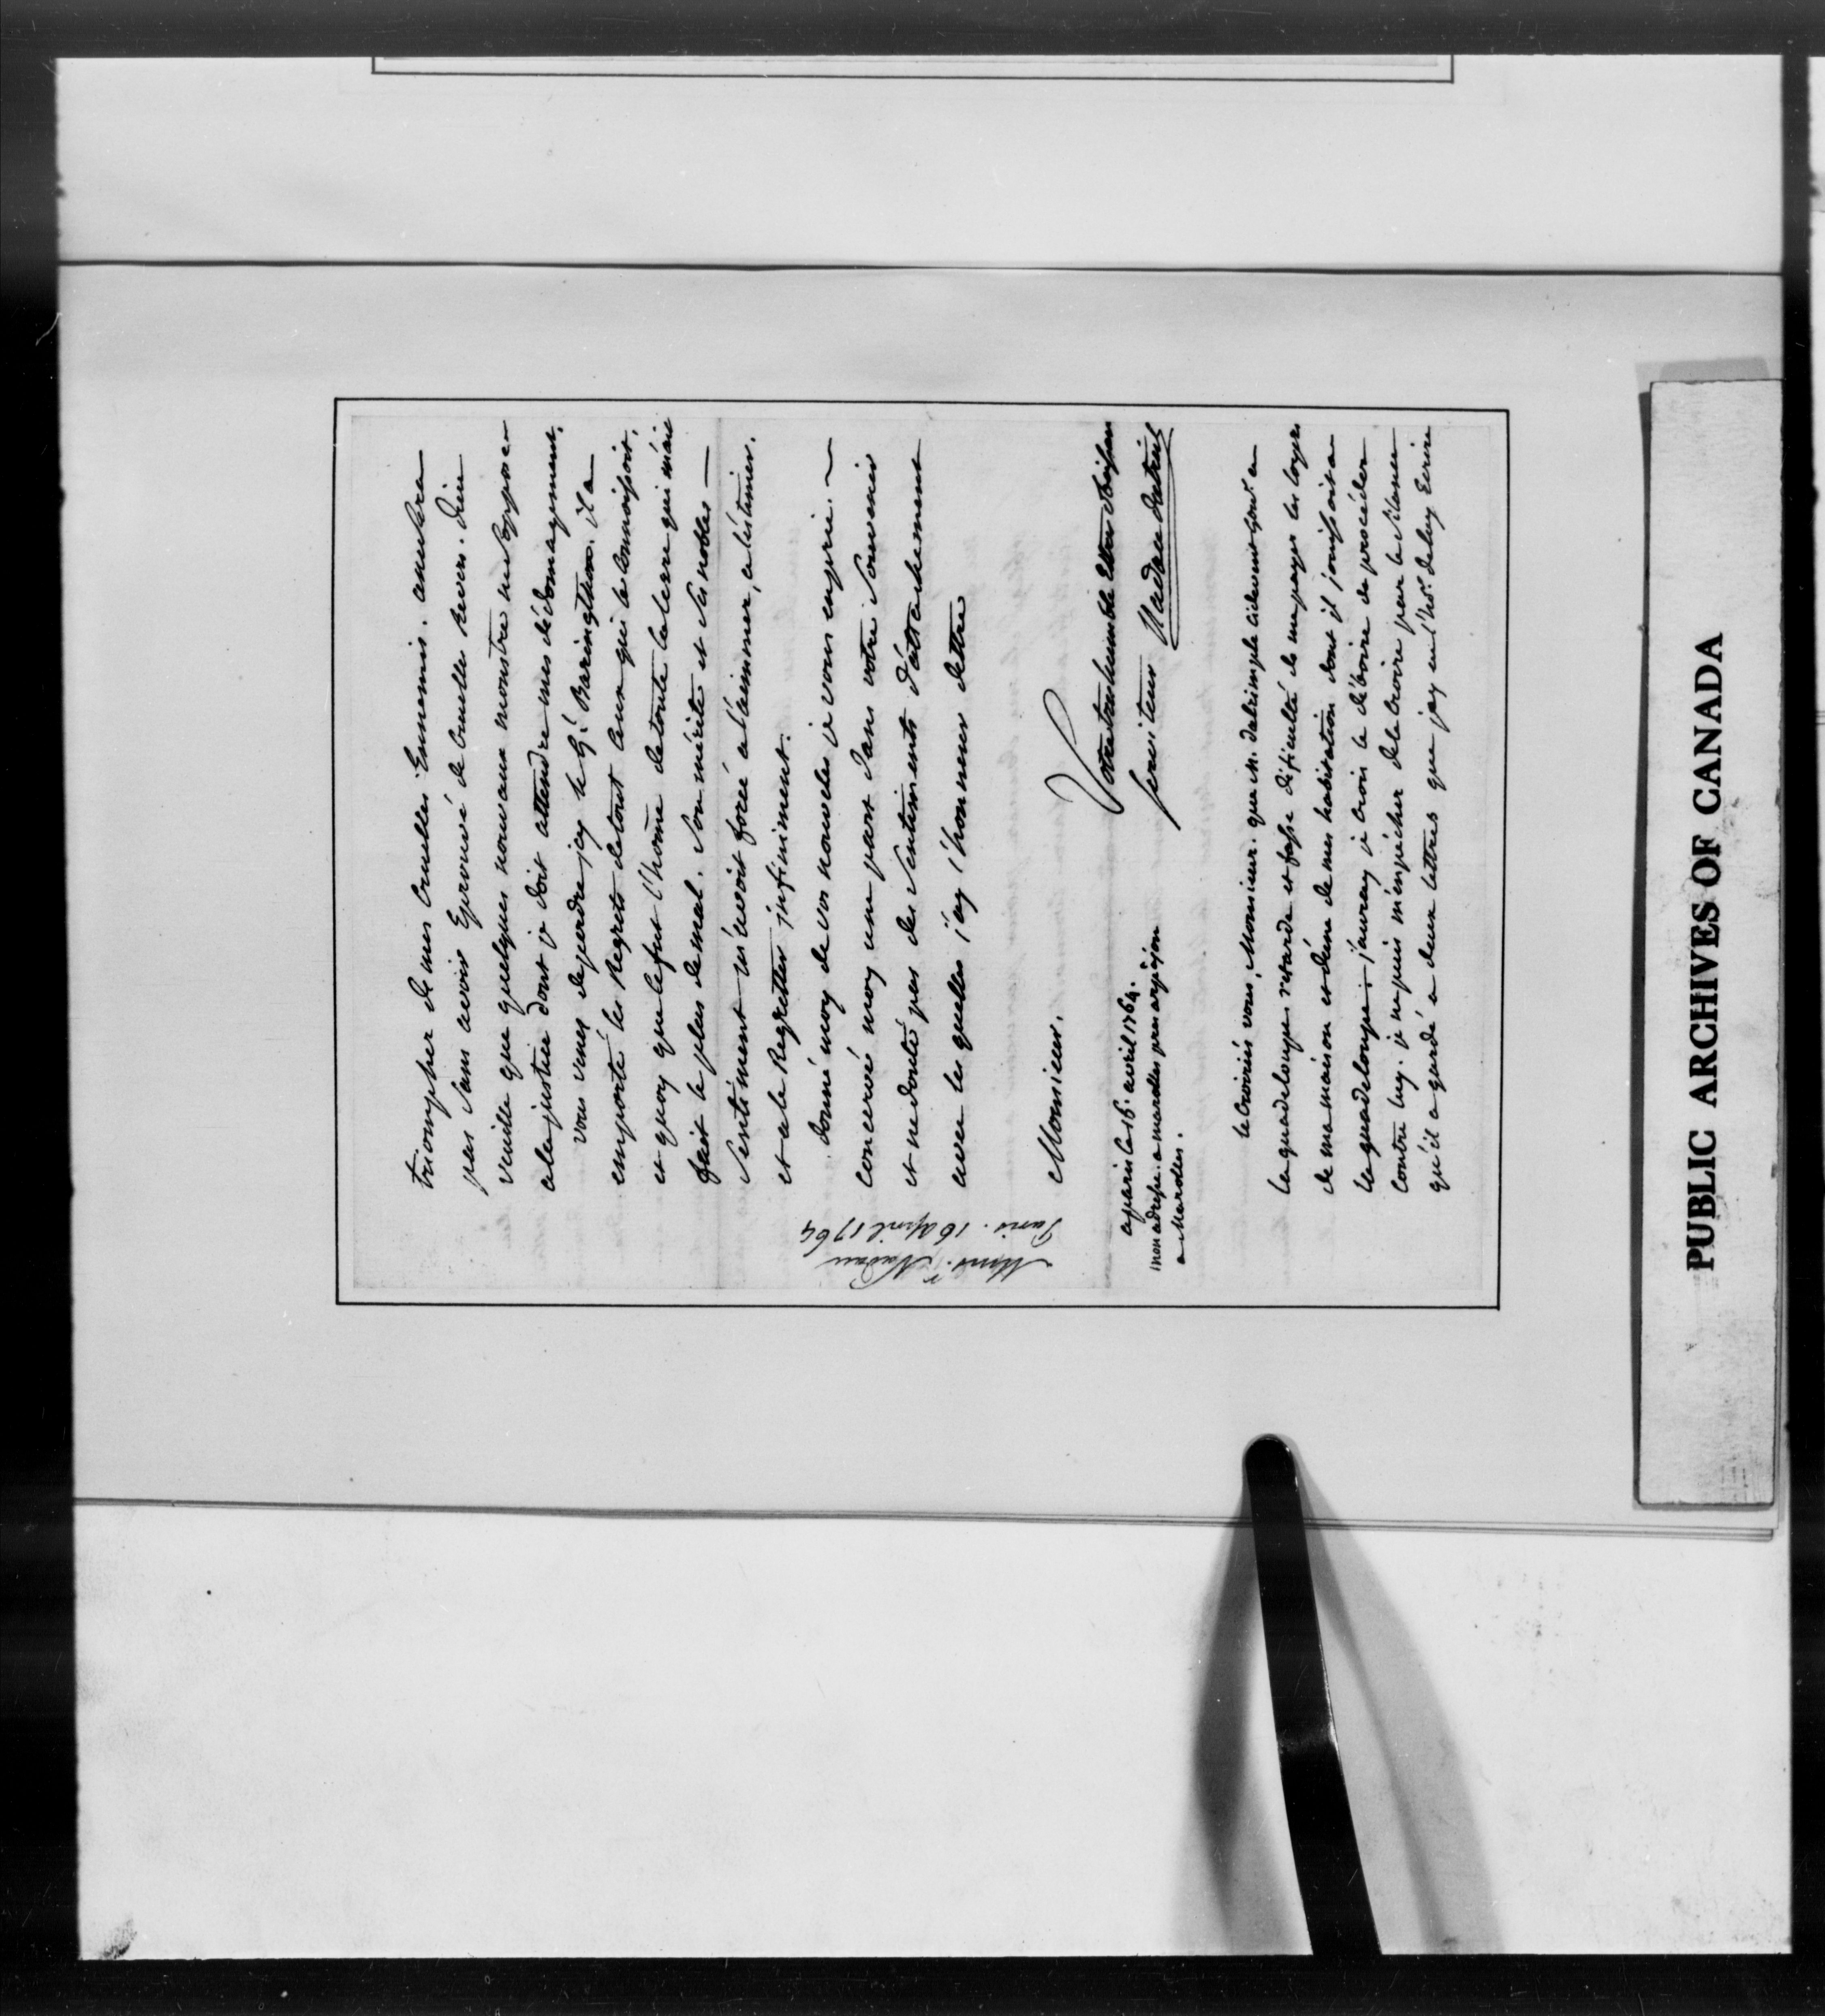 triompher de mes Cruelles Ennemis. ance sera
pas sans avoir Eprouvé de Cruelles revers. dieu
veuille que quelques nouveaux monstre ne s'oppose
a la justice dont je doit attendre mes dédomagement.
vous venes de perdre jcy le Gl. Barington. il a
emporté les Regrets de tout Ceux qui le Connoissoit.
et quoy que le fut l'home de toute la terre qui m'aie
fait le plus de mal. Son mérite et Ses nobles
Sentiment m'avoit forcé a l'aimer, a l'éstimer.
et a le Regretter infiniment.
donné moy de vos nouvelles je vous en prie.
conservé moy une part dans votre Souvenir
et ne douté pas des Sentiments d'attachement
avec les quelles j'ay l'honneur dettre
Monsieur.
Votre tres humble Et tres obeissant
serviteur Nadau dutreil
a paris le 16. avril 1764.
mon adresse a marolles pres arpajon
a Marolles.
Monsr. Nadau
Paris. 16 April 1764
le Croiriés vous, Monsieur. que M. dalrimple cidevent Gouvr. a
la guadeloupe retarde et fasse dificulté de me payer les loyers
de ma maison et d'une de mes habitation dont il jouissoit a
la guadeloupe. j'auray je crois le déboire de procéder
Contre luy. je ne puis m'enpécher de le croire par le silence
qu'il a gardé a deux lettres que jay eu l'hor. de luy Ecrire
PUBLIC ARCHIVES OF CANADA